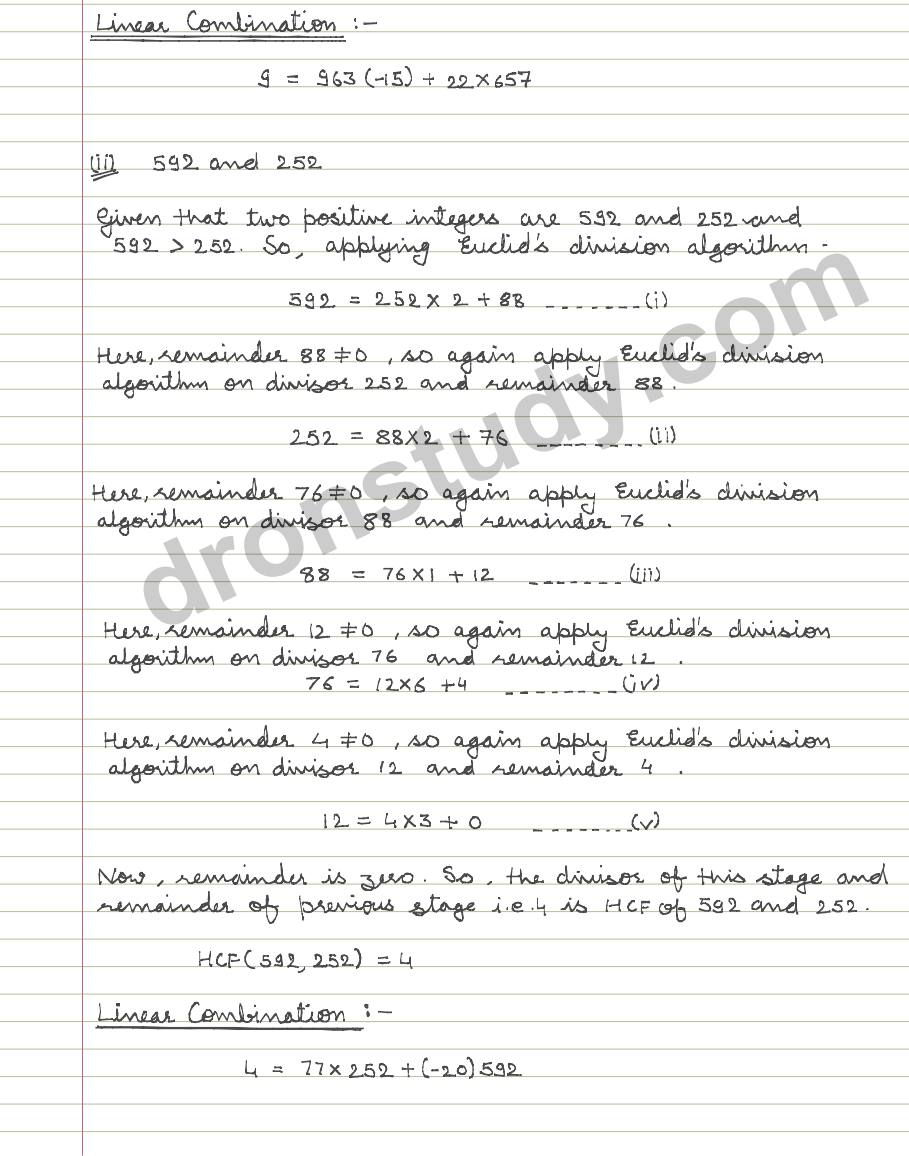 Linear Combination :-
9 = 963 (-15) + 22 × 657
(ii) 592 and 252
Given that two positive integers are 592 and 252 and
592 > 252. So, applying Euclid's division algorithm -
592 = 252 × 2 + 88 -------(i)
Here, remainder 88 ≠ 0, so again apply Euclid's division
algorithm on divisor 252 and remainder 88.
252 = 88 × 2 + 76 --------(ii)
Here, remainder 76 ≠ 0, so again apply Euclid's division
algorithm on divisor 88 and remainder 76.
88 = 76 × 1 + 12 -------(iii)
Here, remainder 12 ≠ 0, so again apply Euclid's division
algorithm on divisor 76 and remainder 12.
76 = 12 × 6 + 4 --------(iv)
Here, remainder 4 ≠ 0, so again apply Euclid's division
algorithm on divisor 12 and remainder 4.
12 = 4 × 3 + 0 -------(v)
Now, remainder is zero. So, the divisor of this stage and
remainder of previous stage i.e. 4 is HCF of 592 and 252.
HCF (592, 252) = 4
Linear Combination :-
4 = 77 × 252 + (-20) 592
dronstudy.com